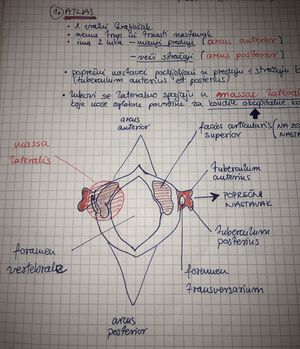 1. ATLAS
• 1. vratni kralježak
• nema trup ni trnasti nastavak
• ima 2 luka – manji prednji (arcus anterior)
– veći stražnji (arcus posterior)
• poprečni nastavci podijeljeni u prednju i stražnju
(tuberculum anterius et posterius)
• lukovi se lateralno spajaju u massae lateralis
koje nose zglobne površine za kondile okcipitalne
arcus
anterior
facies articularis (NA
superior
massa
lateralis
tuberculum
anterius
POPREČNI
NASTAVAK
tuberculum
posterius
foramen
vertebrale
foramen
transversarium
arcus
posterior